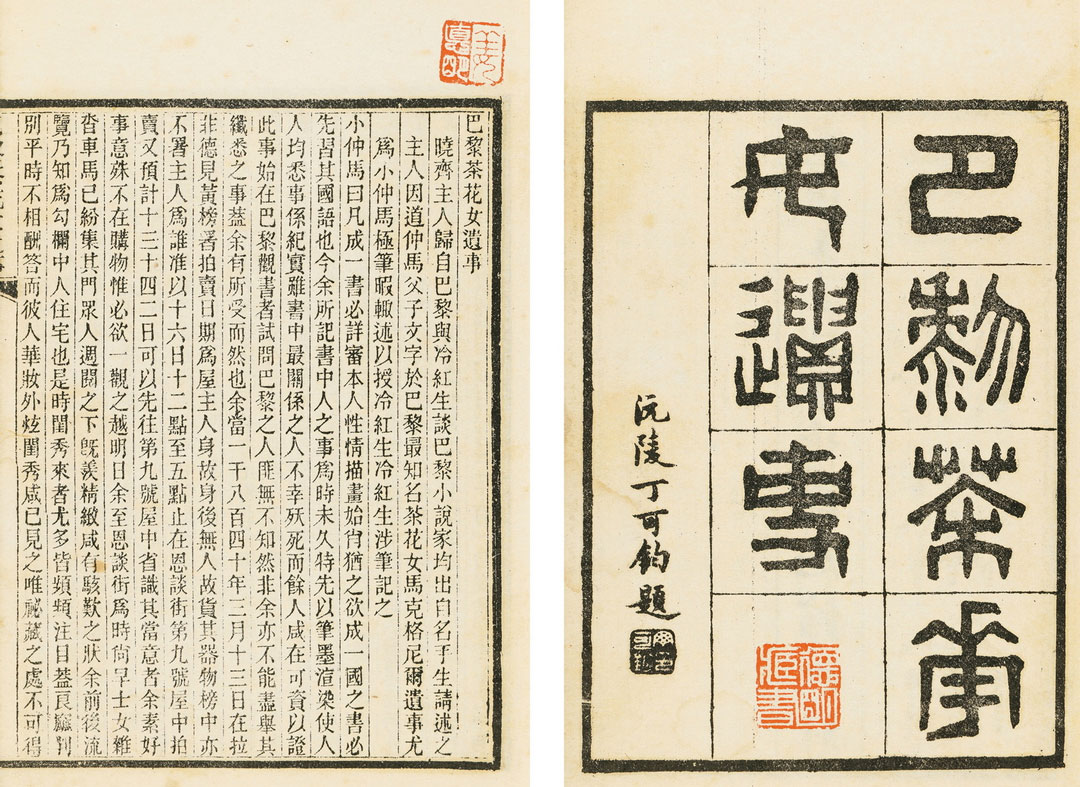 巴黎茶華
女遺事
沅陵丁可鈞題
巴黎茶花女遺事
曉齊主人歸自巴黎與冷紅生談巴黎小說家均出自名手生請述之
主人因道仲馬父子文字於巴黎最知名茶花女馬克格尼爾遺事尤
爲小仲馬極筆暇輒述以授冷紅生冷紅生涉筆記之
小仲馬曰凡成一書必詳審本人性情描畫始肖猶之欲成一國之書必
先習其國語也今余所記書中人之事爲時未久特先以筆墨渲染使人
人均悉事係紀實雖書中最關係之人不幸殀死而餘人咸在可資以證
此事始在巴黎觀書者試問巴黎之人匪無不知然非余亦不能盡舉其
纖悉之事葢余有所受而然也余當一千八百四十年二月十三日在拉
非德見黃榜署拍賣日期爲屋主人身故身後無人故貨其器物榜中亦
不署主人爲誰准以十六日十二點至五點止在恩談街第九號屋中拍
賣又預計十三十四二日可以先往第九號屋中省識其當意者余素好
事意殊不在購物惟必欲一觀之越明日余至恩談街爲時尙早士女雜
沓車馬已紛集其門眾人週閱之下旣羨精緻咸有駭歎之狀余前後流
覽乃知爲勾欄中人住宅也是時閨秀來者尤多皆頻頻注目葢良廳判
別平時不相酬答而彼人華妝外炫閨秀咸已見之唯祕藏之處不可得